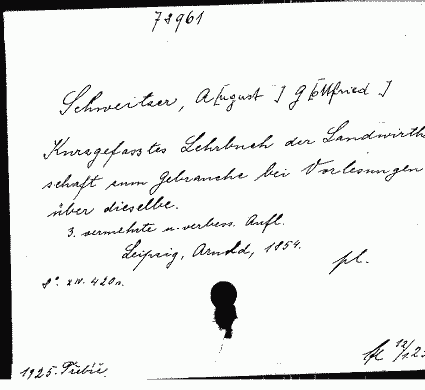 78961
Schweitzer, A[ugust] G[ottfried]
Kurzgefasstes Lehrbuch der Landwirth
schaft zum Gebrauche bei Vorlesungen
über dieselbe.
3. vermehrte u. verbess. Aufl.
Leipzig, Arnold, 1854.
pl.
8°. XIV. 420 s.
1925. Třebíč.